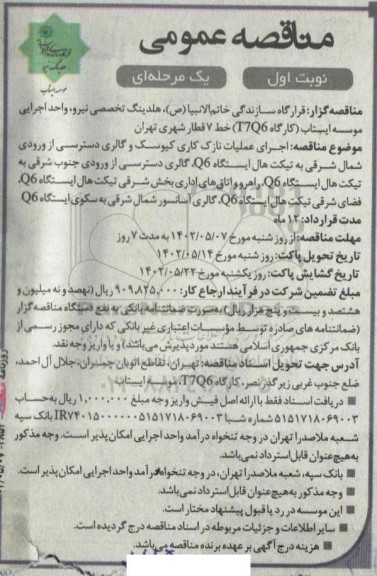 مناقصه عمومی
نوبت اول
یک مرحله‌ای
مناقصه‌گزار: قرارگاه سازندگی خاتم‌الانبیا (ص)، هلدینگ تخصصی نیرو، واحد اجرایی
موسسه ایستاب (کارگاه T7Q6) خط ۷ قطار شهری تهران
موضوع مناقصه: اجرای عملیات نازک کاری کیوسک و گالری دسترسی از ورودی
شمال شرقی به تیکت هال ایستگاه Q6، گالری دسترسی از ورودی جنوب شرقی به
تیکت هال ایستگاه Q6، راهرو و اتاق‌های اداری بخش شرقی تیکت هال ایستگاه Q6،
فضای شرقی تیکت هال ایستگاه Q6، گالری آسانسور شمال شرقی به سکوی ایستگاه Q6
مدت قرارداد: ۱۲ ماه
مهلت مناقصه: از روز شنبه مورخ ۱۴۰۲/۰۵/۰۷ به مدت ۷ روز
تاریخ تحویل پاکت: روز شنبه مورخ ۱۴۰۲/۰۵/۱۴
تاریخ گشایش پاکت: روز یکشنبه مورخ ۱۴۰۲/۰۵/۲۲
مبلغ تضمین شرکت در فرآیند ارجاع کار: ۹۰۹،۸۲۵،۰۰۰ ریال (نهصد و نه میلیون و
هشتصد و بیست و پنج هزار ریال) به‌صورت ضمانتنامه بانکی به نفع دستگاه مناقصه‌گزار
(ضمانتنامه های صادره توسط مؤسسات اعتباری غیر بانکی که دارای مجوز رسمی از
بانک مرکزی جمهوری اسلامی هستند مورد پذیرش می‌باشد) و یا واریز وجه نقد.
آدرس جهت تحویل اسناد مناقصه: تهران، تقاطع اتوبان چمران، جلال آل احمد،
ضلع جنوب غربی زیر گذر نصر، کارگاه T7Q6، موسسه ایستاب
■ دریافت اسناد فقط با ارائه اصل فیش واریز وجه مبلغ ۱،۰۰۰،۰۰۰ ریال به‌حساب
۵۱۵۱۷۱۸۰۶۹۰۰۳ شماره شبا IR۷۴۰۱۵۰۰۰۰۰۰۵۱۵۱۷۱۸۰۶۹۰۰۳ بانک سپه
شعبه ملاصدرا تهران در وجه تنخواه درآمد واحد اجرایی امکان‌پذیر است. وجه مذکور
به‌هیچ‌عنوان قابل استرداد نمی‌باشد.
■ بانک سپه، شعبه ملاصدرا تهران، در وجه تنخواه درآمد واحد اجرایی امکان‌پذیر است.
■ وجه مذکور به هیچ عنوان قابل استرداد نمی‌باشد.
■ این موسسه در رد یا قبول پیشنهاد مختار است.
■ سایر اطلاعات و جزئیات مربوطه در اسناد مناقصه درج گردیده است.
■ هزینه درج آگهی بر عهده برنده مناقصه می‌باشد.